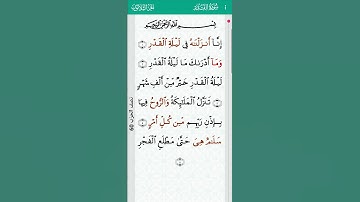 سُورَةُ القَدْرِ
بِسْمِ اللَّهِ الرَّحْمَٰنِ الرَّحِيمِ
إِنَّا أَنزَلْنَٰهُ فِي لَيْلَةِ الْقَدْرِ ۝
وَمَا أَدْرَىٰكَ مَا لَيْلَةُ الْقَدْرِ ۝
لَيْلَةُ الْقَدْرِ خَيْرٌ مِّنْ أَلْفِ شَهْرٍ
۝ تَنَزَّلُ الْمَلَٰٓئِكَةُ وَالرُّوحُ فِيهَا
بِإِذْنِ رَبِّهِم مِّن كُلِّ أَمْرٍ ۝
سَلَٰمٌ هِيَ حَتَّىٰ مَطْلَعِ الْفَجْرِ
۝
نصف الحزب 60